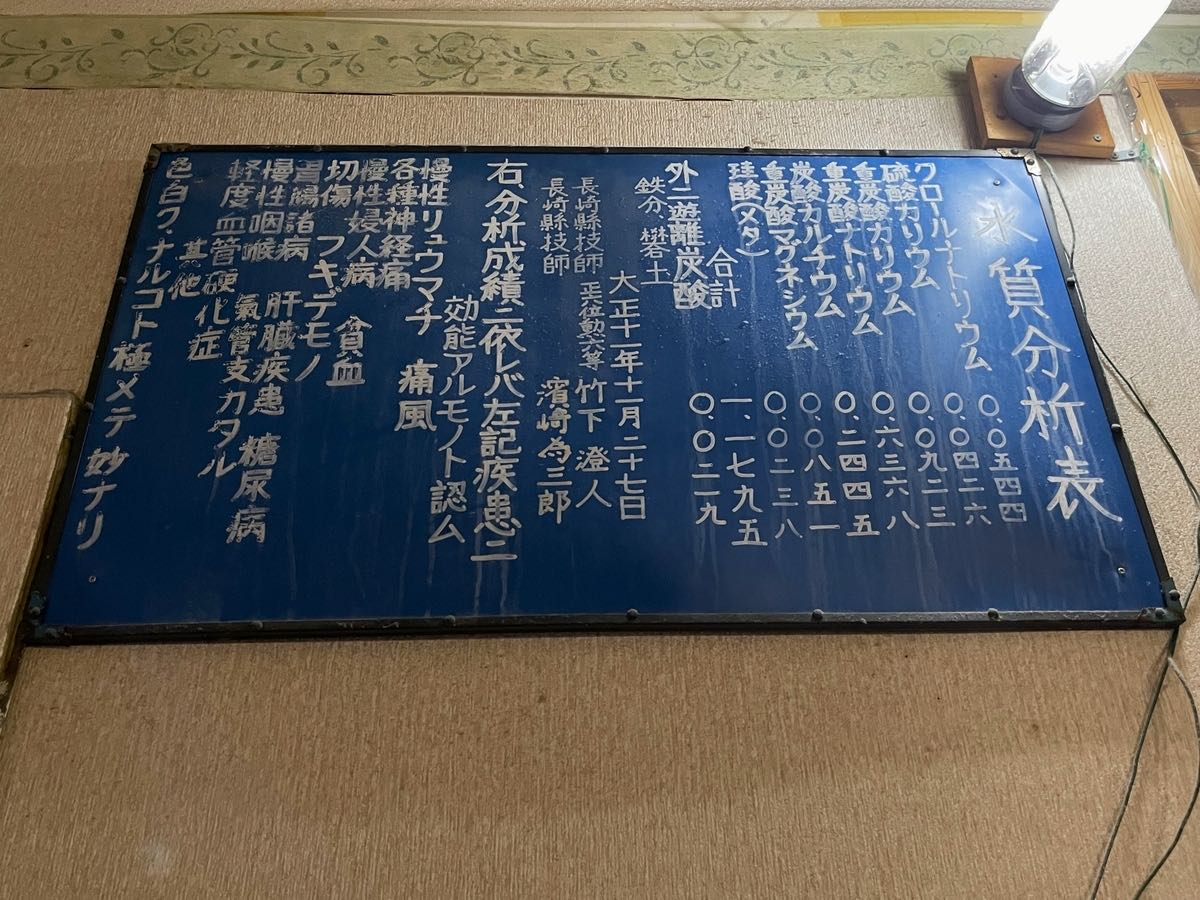 水質分析表
クロールナトリウム 〇.〇五四四
硫酸カリウム 〇.〇四二六
重炭酸カリウム 〇.〇九二三
重炭酸ナトリウム 〇.六三六八
炭酸カルチウム 〇.二四四五
重炭酸マグネシウム 〇.〇八五一
珪酸(メタ) 〇.〇二三八
合計 一.一七九五
外ニ遊離炭酸 〇.〇二一九
鉄分、礬土
大正十一年十一月二十七日
長崎縣技師 正六位勲六等 竹下澄人
長崎縣技師 濱崎為三郎
右、分析成績ニ依レバ左記疾患ニ
効能アルモノト認ム
慢性リュウマチ 痛風
各種神経痛
慢性婦人病 貧血
切傷 フキデモノ
胃腸諸病 肝臓疾患 糖尿病
慢性咽喉 氣管支カタル
軽度血管硬化症
其他
色白ク、ナルコト極メテ妙ナリ